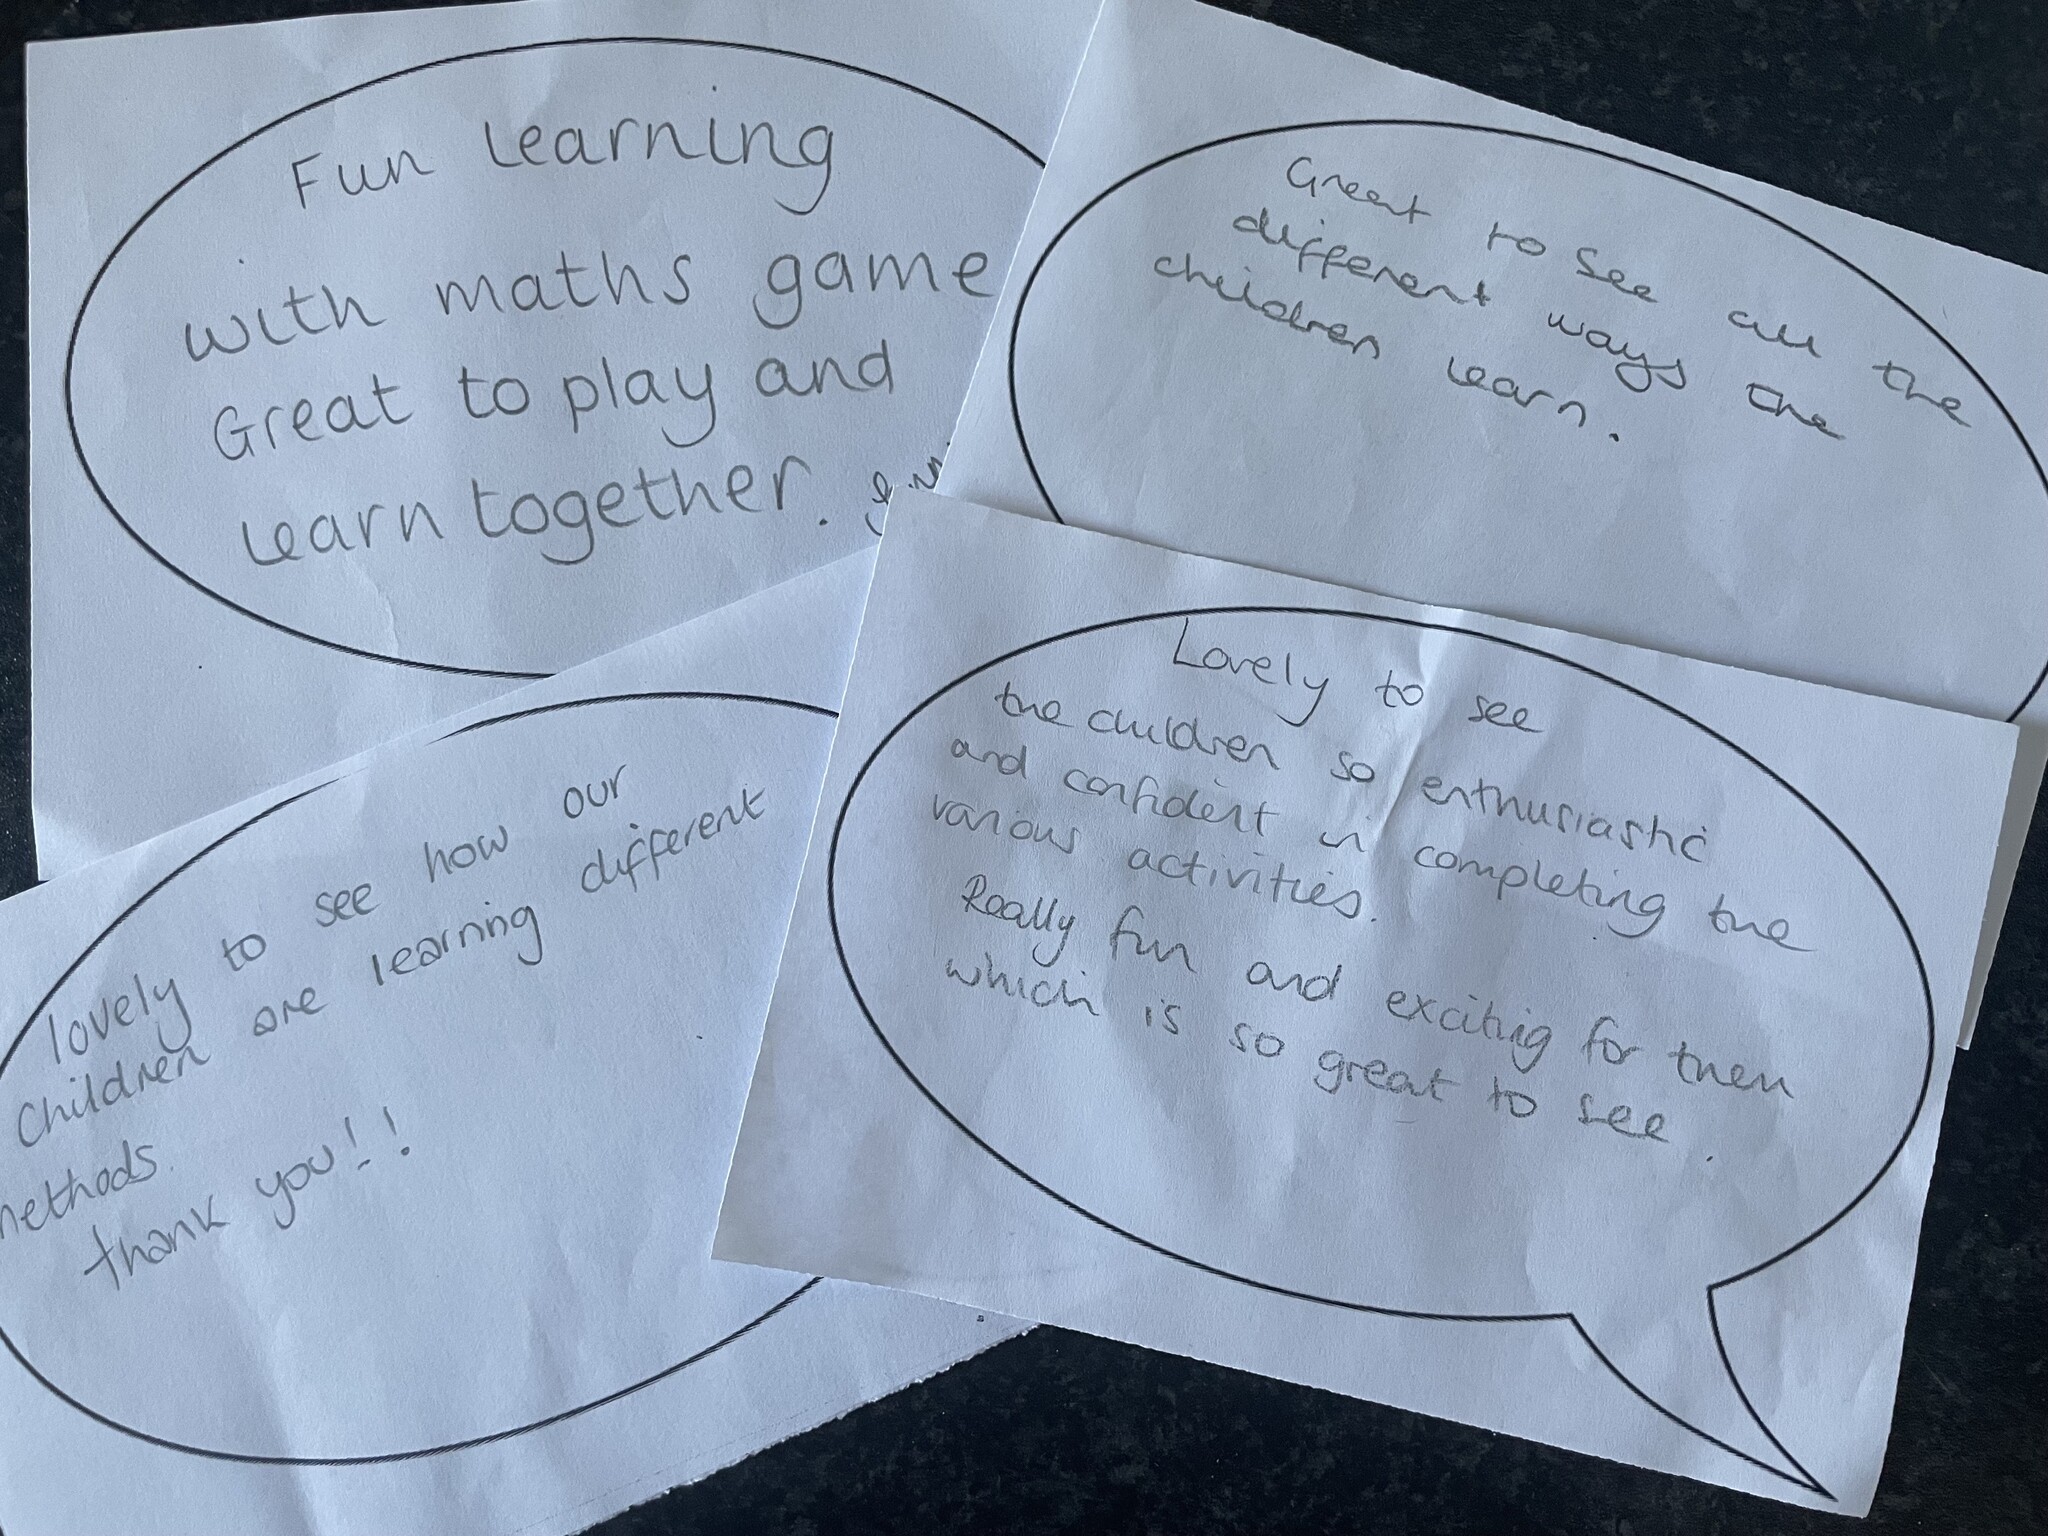 Fun learning
with maths game
Great to play and
learn together.
Great to see all the
different ways the
children learn.
lovely to see how our
Children are learning different
methods.
thank you!!
Lovely to see
the children so enthusiastic
and confident in completing the
various activities.
Really fun and exciting for them
which is so great to see.